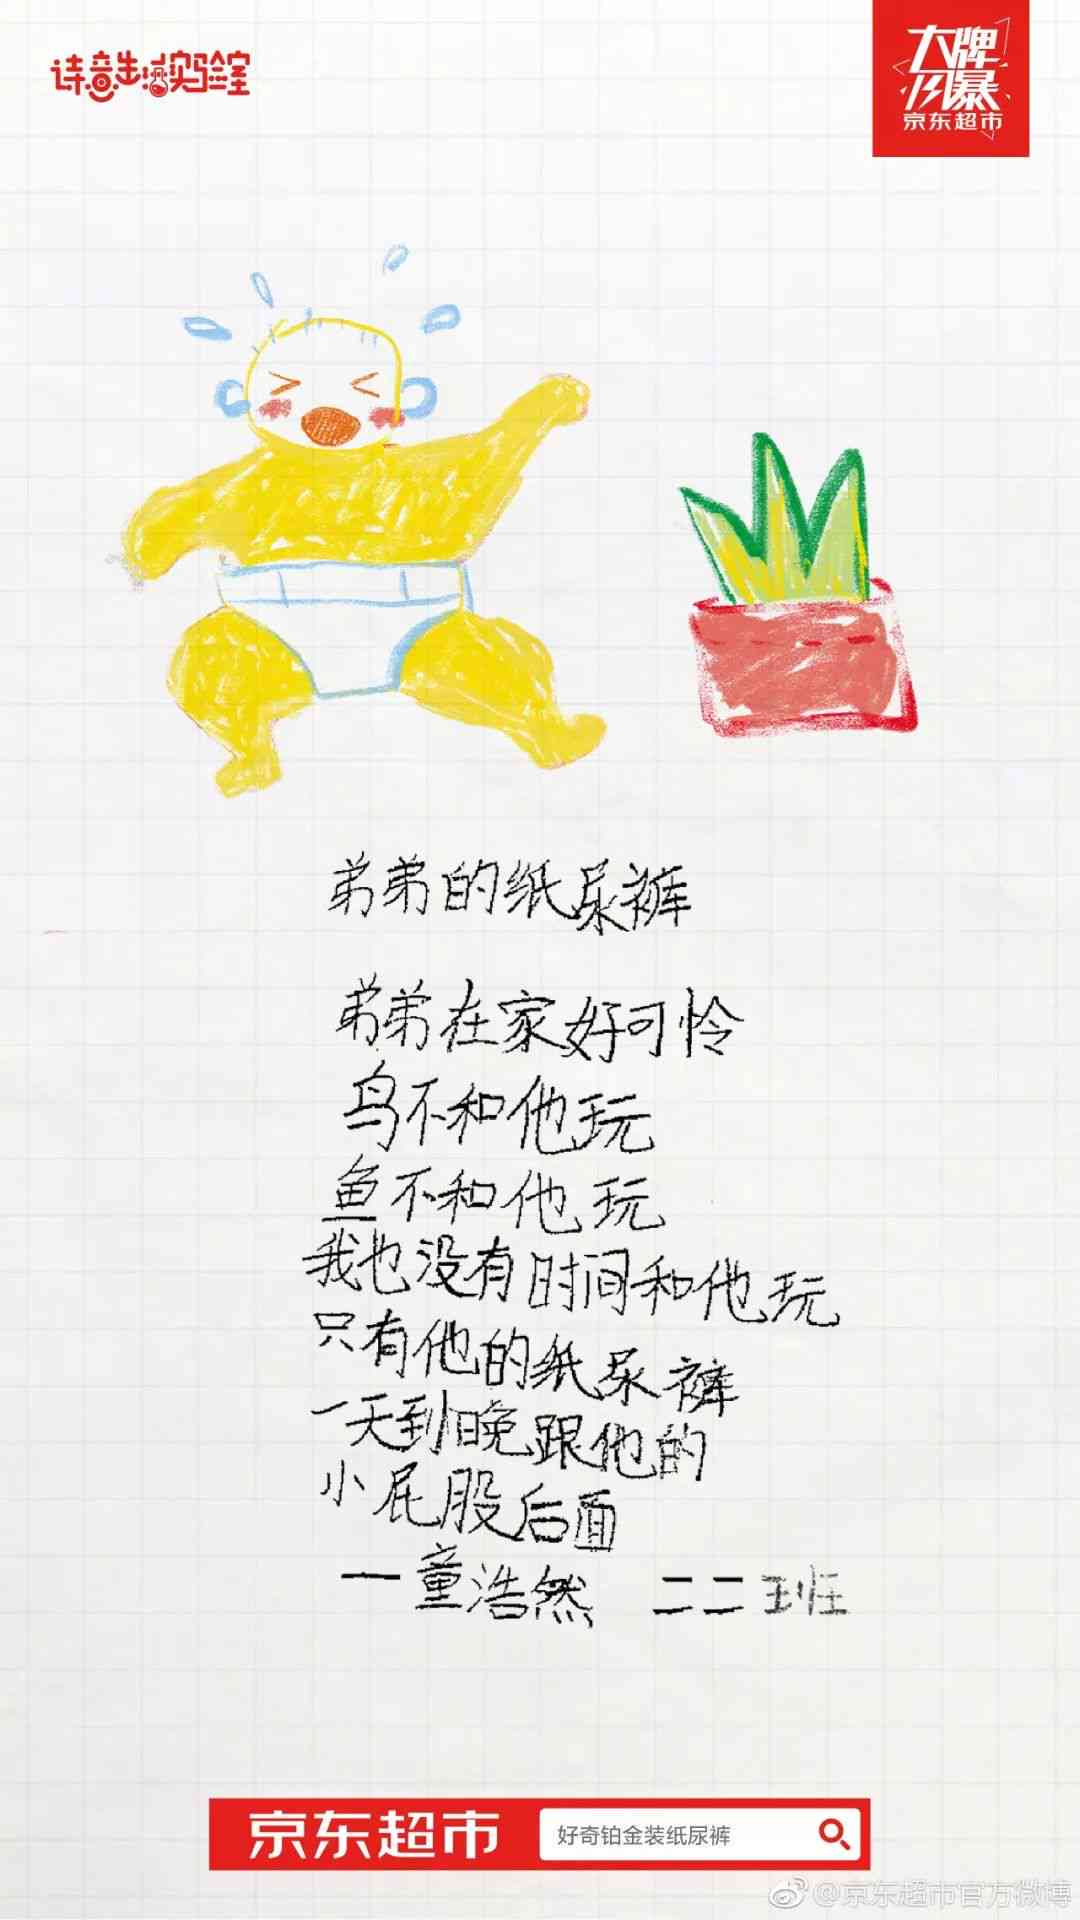 诗意生活实验室
大牌
风暴
京东超市
弟弟的纸尿裤
弟弟在家好可怜
鸟不和他玩
鱼不和他玩
我也没有时间和他玩
只有他的纸尿裤
一天到晚跟他的
小屁股后面
—童浩然 二二班
京东超市 好奇铂金装纸尿裤
@京东超市官方微博